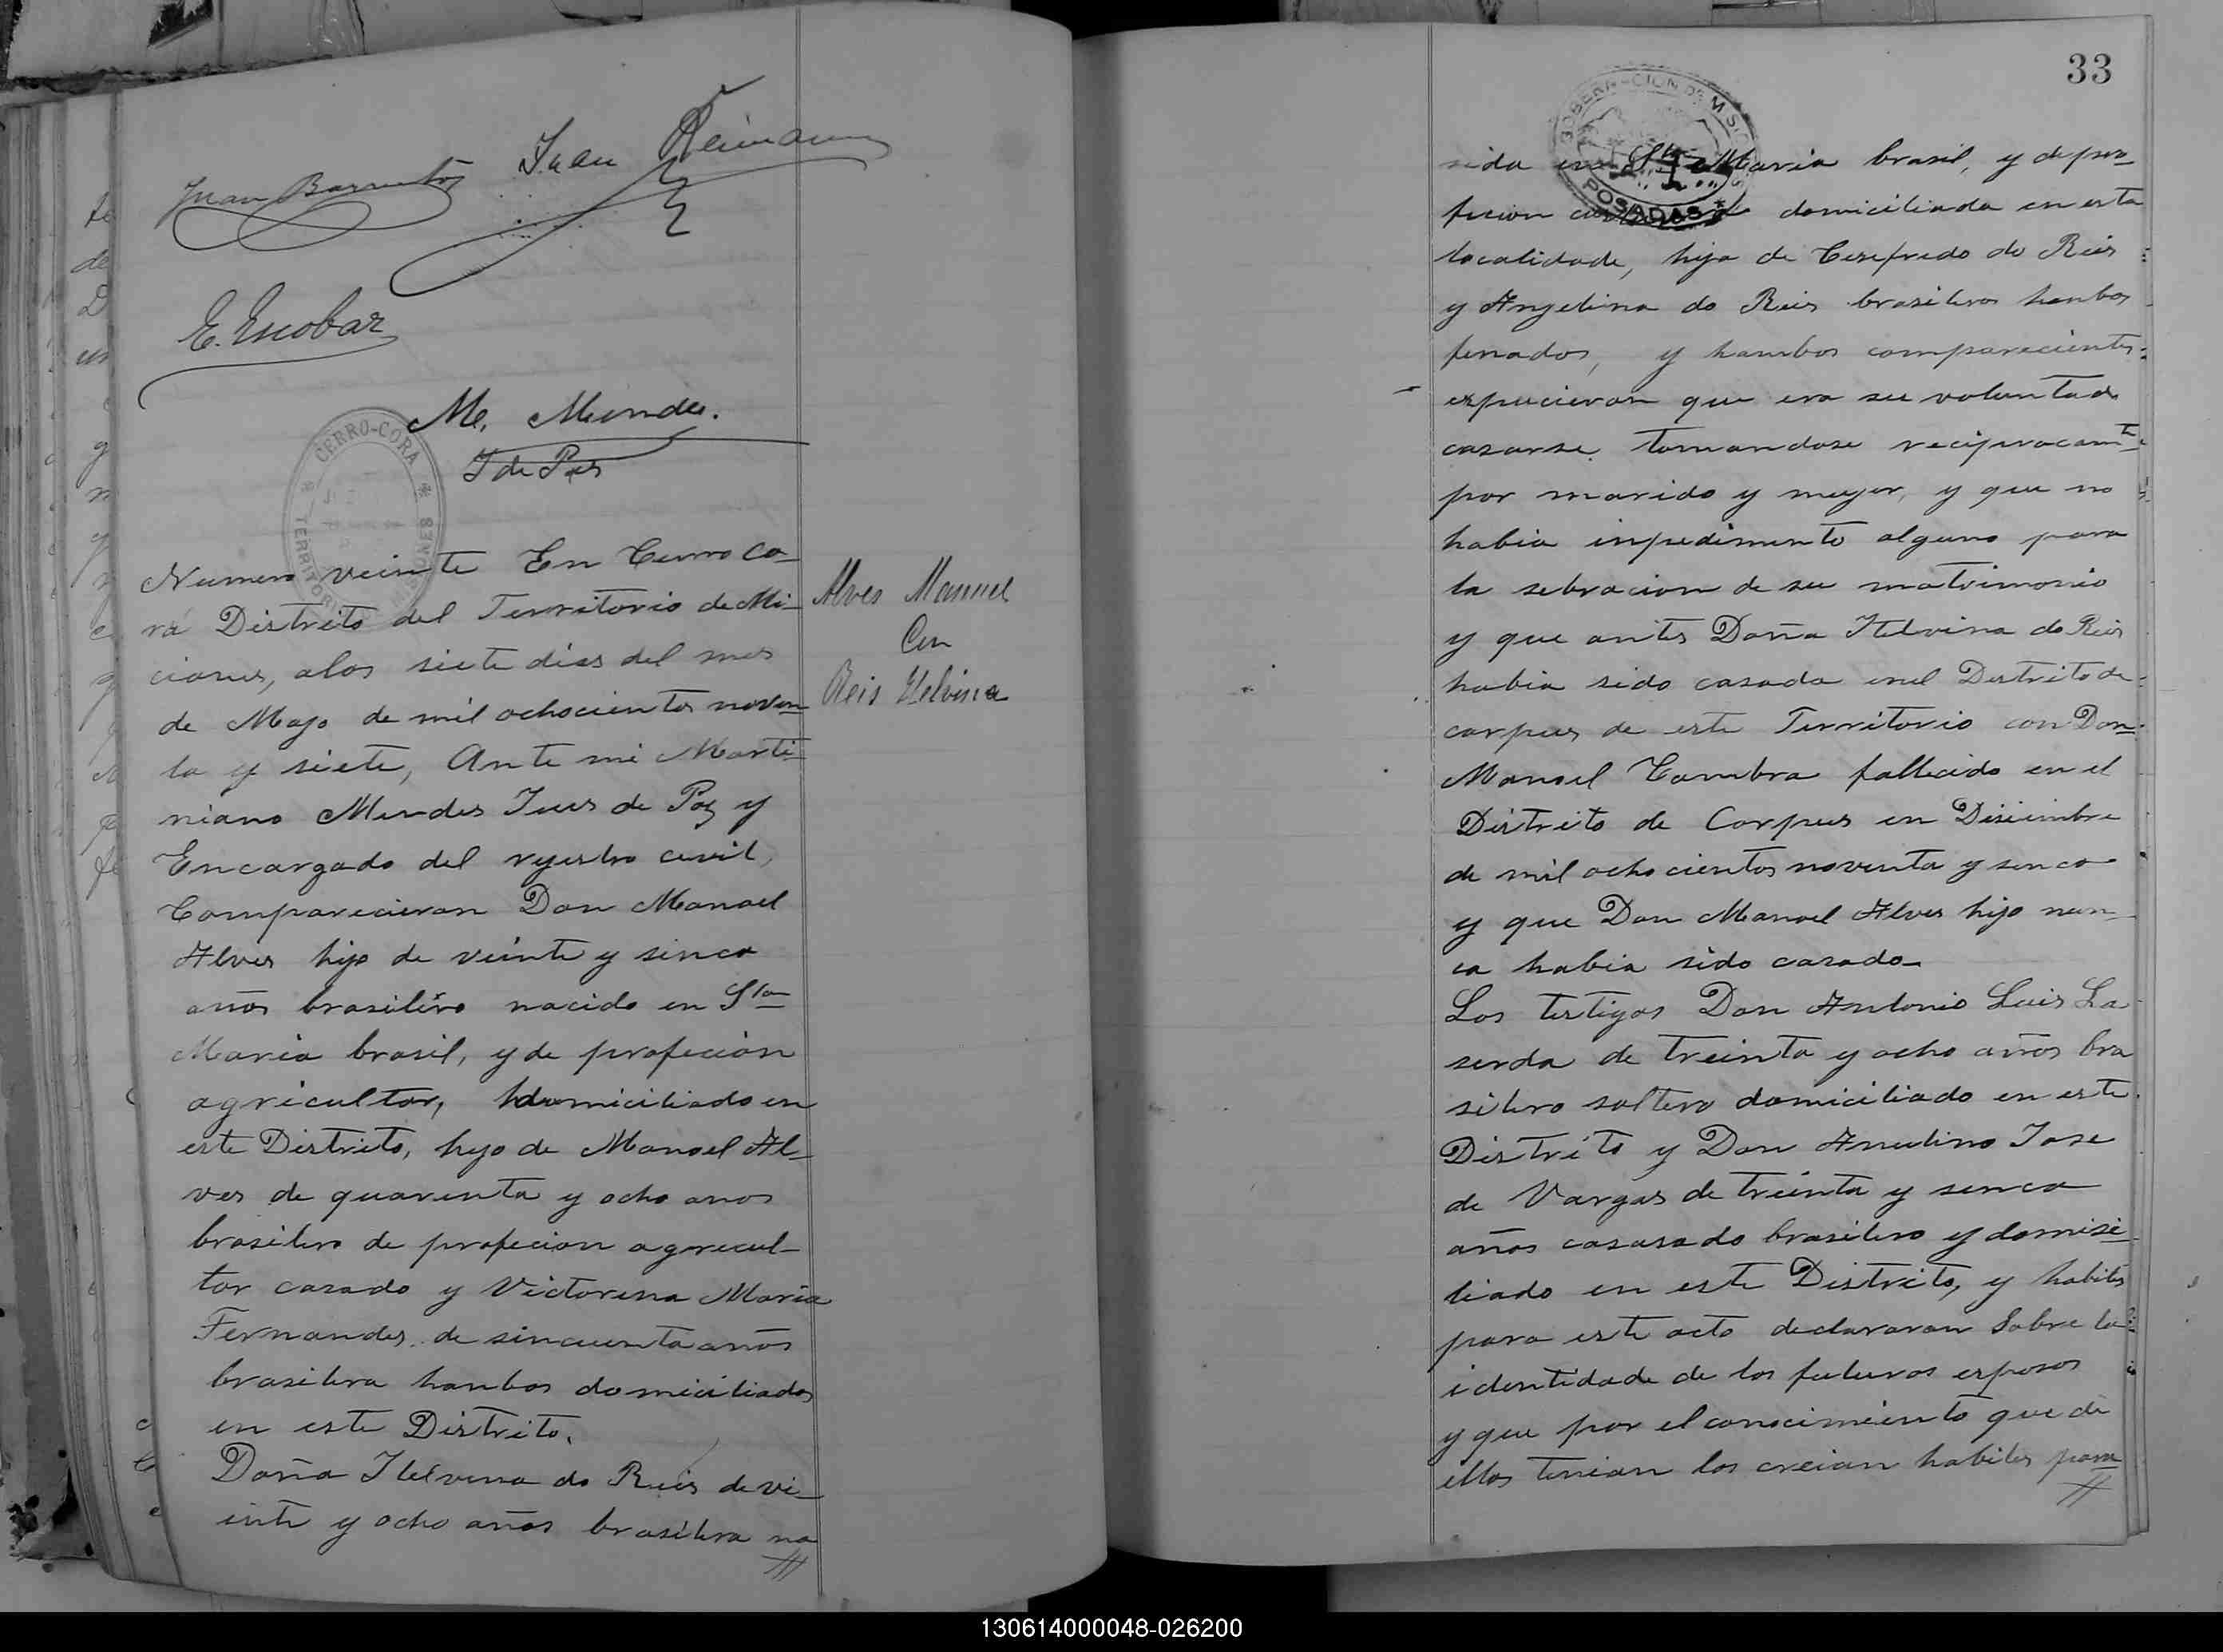 Juan Barrientos
Juan Reimann
E. Escobar
M. Mendes.
J de Pas
CERRO-CORA
TERRITORIO
Numero veinte En Cerro Co-
rá Distrito del Territorio de Mi-
ciones, alos siete dias del mes
de Mayo de mil ochocientos noven-
ta y siete, Ante mi Marti-
niano Mendes Jues de Paz y
Encargado del rejistro civil,
Comparecieron Don Manoel
Alves hijo de veinte y sinco
años brasilero nacido en Sta
Maria brasil, y de profecion
agricultor, domiciliado en
este Distrito, hijo de Manoel Al-
ves de quarenta y ocho anos
brasilero de profecion agrecul-
tor casado y Victorina Maria
Fernandes de sincuenta años
brasilera hanbos domiciliados
en este Distrito.
Doña Itelvina do Reis de vi-
inte y ocho años brasilera na
Alves Manuel
Con
Reis Etelvina
33
GOBERNACION DE MISIONES
POSADAS
sida en Sta Maria brasil, y de pro-
fecion domiciliada en esta
localidade, hija de Cesefredo do Reis
y Angelina do Reis brasileros hanbos
finados, y hambos comparecientes
espucieron que era su voluntade
casarse tomandose reciprocamte
por marido y mujer, y que no
habia inpedimento alguno para
la sebracion de su matrimonio
y que antes Doña Itelvina do Reis
habia sido casada enel Distrito de
corpus de este Territorio con Don
Manoel Cambra fallecido en el
Distrito de Corpus en Disiembre
de mil ochocientos noventa y senco
y que Don Manoel Alves hijo nun-
ca habia sido casado.
Los testigos Don Antonio Luis La
serda de treinta y ocho años bra
silero soltero domiciliado en este
Distrito y Don Anulino Jose
de Vargas de treinta y senco
años casasado brasilero y domisi-
liado en este Distrito, y habiles
para este acto declararon Sobre la
identidade de los futuros esposos
y que por el conocimiento que de
ellos tenian los creian habiles para
130614000048-026200